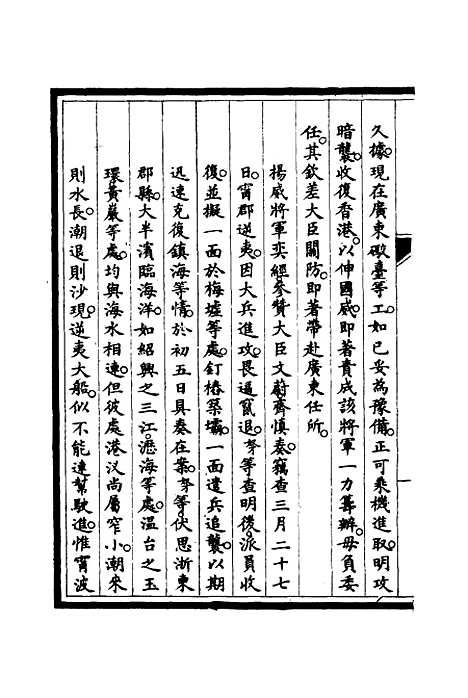 久據。現在廣東礮臺等工。如已妥為豫備。正可乘機進取。明攻
暗襲。收復香港。以伸國威。即著責成該將軍一力籌辦。毋負委
任。其欽差大臣關防。即著帶赴廣東任所。
揚威將軍奕經參贊大臣文蔚齊慎奏。竊查三月二十七
日。甯郡逆夷。因大兵進攻。畏逼竄退。等查明後。派員收
復。並擬一面於梅墟等處。釘樁築壩。一面遣兵追襲。以期
迅速克復鎮海等情。於初五日具奏在案。等。伏思浙東
郡縣。大半濱臨海洋。如紹興之三江。瀝海等處。溫台之玉
環黃巖等處。均與海水相連。但彼處港汊尚屬窄小。潮來
則水長。潮退則沙現。逆夷大船。似不能連幫駛進。惟甯波